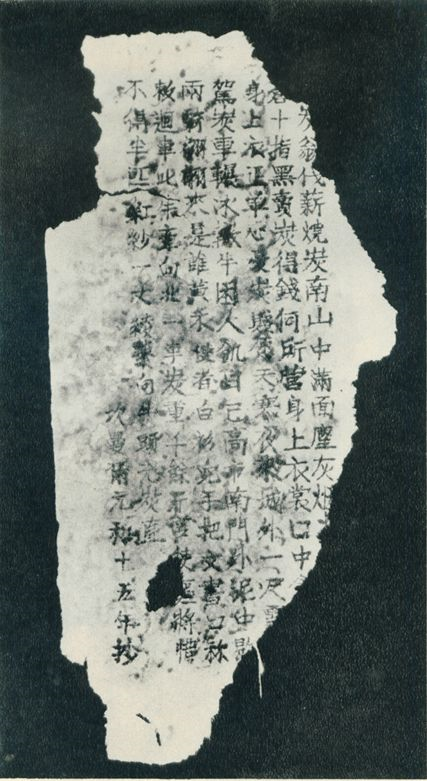 炭翁伐薪燒炭南山中滿面塵灰烟
十指黑賣炭得錢何所營身上衣裳口中
身上衣正單心憂炭賤願天寒夜來城外一尺雪
駕炭車輾冰轍牛困人飢日已高市南門外泥中歇
兩騎翩翩來是誰黃衣使者白衫兒手把文書口称
敕迴車叱牛牽向北一車炭重千餘斤宮使驅將惜
不得半匹紅紗一丈綾繫向牛頭充炭直
坎曼爾元和十五年抄